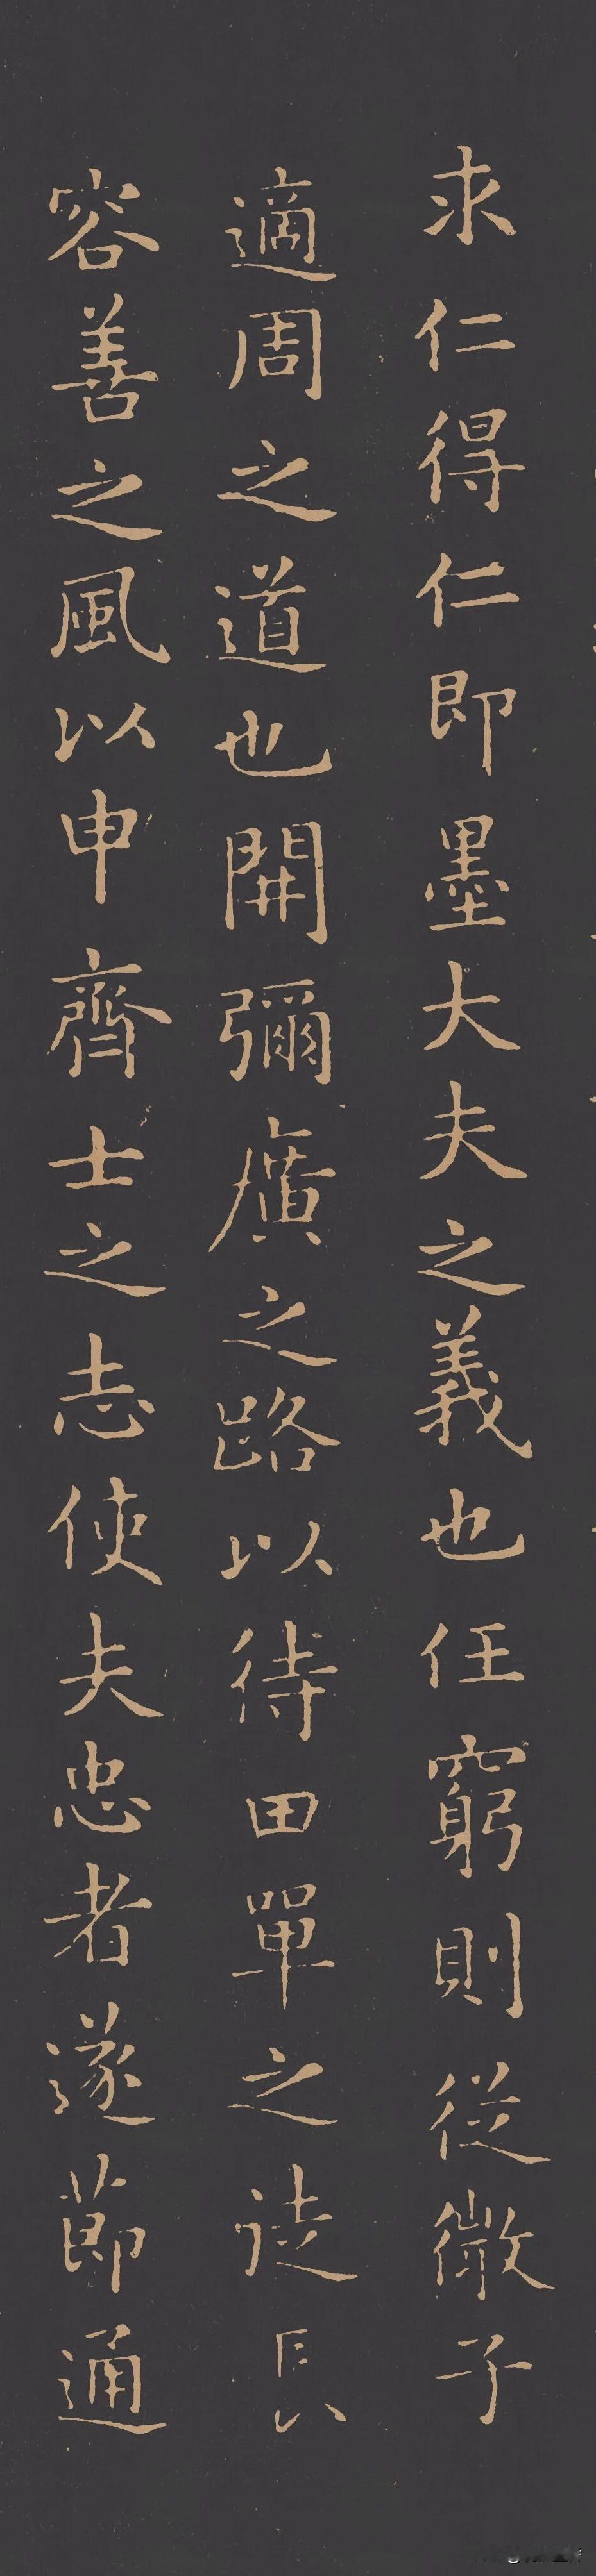 求仁得仁即墨大夫之義也任窮則從微子
適周之道也開彌廣之路以待田單之徒長
容善之風以申齊士之志使夫忠者遂節通